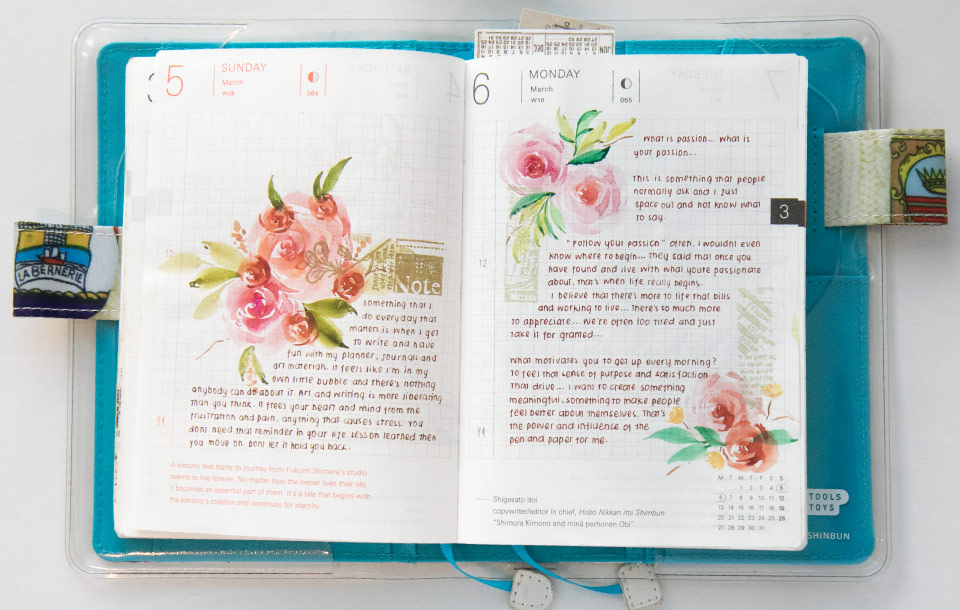 5
SUNDAY
March
W09
064
12
Note
something that I
do everyday that
matters is when I get
to write and have
fun with my planner, journals and
art materials. It feels like I'm in my
own little bubble and there's nothing
anybody can do about it. Art and writing is more liberating
than you think. It frees your heart and mind from the
frustration and pain. anything that causes stress. You
dont need that reminder in your life. Lesson learned then
you move on. Dont let it hold you back.
A kimono that starts its journey from Fukumi Shimura's studio
seems to live forever. No matter how the owner lives their life,
it becomes an essential part of them. It's a tale that begins with
the kimono's creation and continues for eternity.
LA BERNERIE
JUN
DEC
6
MONDAY
March
W10
065
What is passion... what is
your passion...
This is something that people
normally ask and I just
space out and not know what
to say.
3
"Follow your passion" often, I wouldnt even
know where to begin... They said that once you
have found and live with what you're passionate
about, that's when life really begins.
I believe that there's more to life that bills
and working to live... There's so much more
to appreciate... We're often too tired and just
take it for granted...
12
What motivates you to get up every morning?
To feel that sense of purpose and satisfaction
That drive... I want to create something
meaningful, something to make people
feel better about themselves. That's
the power and influence of the
pen and paper for me.
M T W T F S S
1 2 3 4 5
6 7 8 9 10 11 12
13 14 15 16 17 18 19
20 21 22 23 24 25 26
27 28 29 30 31
Shigesato Itoi
copywriter/editor in chief, Hobo Nikkan Itoi Shimbun
"Shimura Kimono and minä perhonen Obi"
TOOLS
TOYS
SHINBUN